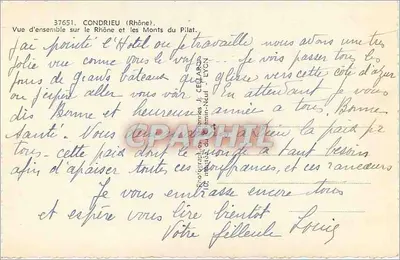 37651. CONDRIEU (Rhône).
Vue d'ensemble sur le Rhône et les Monts du Pilat.
j'ai pointé l'Hotel ou je travaille nous avons une tres
jolie vue comme vous le voyez Je vois passer tous les
jours de grands bateaux qui glisse vers cette côte d'azur
ou j'espere aller vous voir En attendant je vous
dis Bonne et heureuse année a tous. Bonne
Santé. Vous la paix pr
tous - cette paix dont le monde a tant besoin
afin d'apaiser toutes ces souffrances, et ces rancoeurs
Je vous embrasse encore tous
et espère vous lire bientot
Votre filleule Louise
CELLARD
LYON
PAPHIL